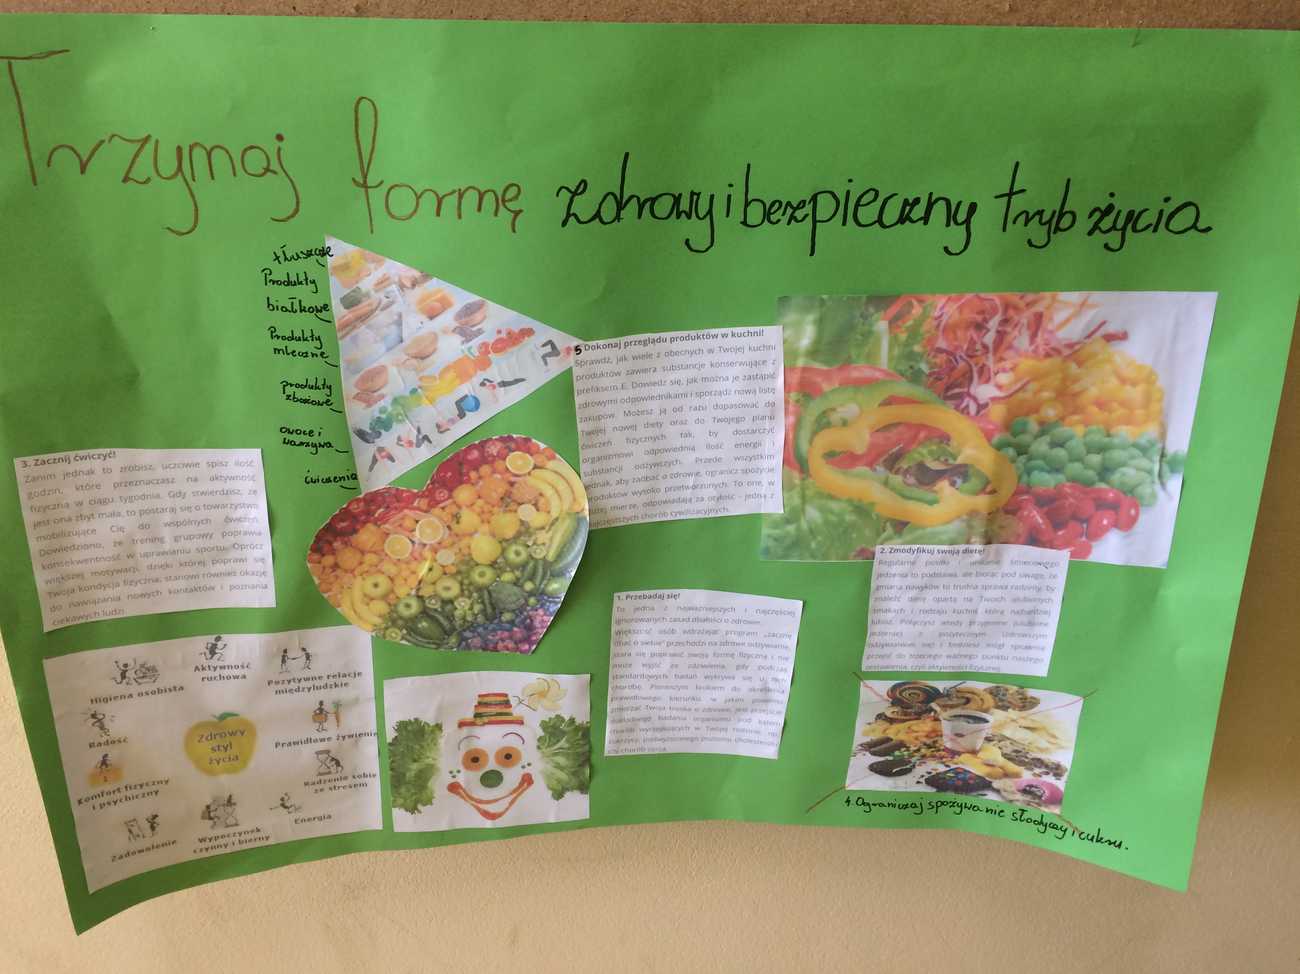 Trzymaj formę zdrowy i bezpieczny tryb życia
tłuszcze
Produkty
białkowe
Produkty
mleczne
produkty
zbożowe
owoce i
warzywa
ćwiczenia
5 Dokonaj przeglądu produktów w kuchni!
Sprawdź, jak wiele z obecnych w Twojej kuchni
produktów zawiera substancje konserwujące z
prefiksem E. Dowiedz się, jak można je zastąpić
zdrowymi odpowiednikami i sporządź nową listę
zakupów. Możesz ją od razu dopasować do
Twojej nowej diety oraz do Twojego planu
ćwiczeń fizycznych tak, by dostarczyć
organizmowi odpowiednią ilość energii i
substancji odżywczych. Przede wszystkim
jednak, aby zadbać o zdrowie, ogranicz spożycie
produktów wysoko przetworzonych. To one, w
dużej mierze, odpowiadają za otyłość - jedną z
najczęstszych chorób cywilizacyjnych.
3. Zacznij ćwiczyć!
Zanim jednak to zrobisz, uczciwie spisz ilość
godzin, które przeznaczasz na aktywność
fizyczną w ciągu tygodnia. Gdy stwierdzisz, że
jest ona zbyt mała, to postaraj się o towarzystwo
mobilizujące Cię do wspólnych ćwiczeń.
Dowiedziono, że trening grupowy poprawia
konsekwentność w uprawianiu sportu. Oprócz
większej motywacji, dzięki której poprawi się
Twoja kondycja fizyczna, stanowi również okazję
do nawiązania nowych kontaktów i poznania
ciekawych ludzi.
2. Zmodyfikuj swoją dietę!
Regularne posiłki i unikanie śmieciowego
jedzenia to podstawa, ale biorąc pod uwagę, że
zmiana nawyków to trudna sprawa radzimy, by
znaleźć dietę opartą na Twoich ulubionych
smakach i rodzaju kuchni, którą najbardziej
lubisz. Połączysz wtedy przyjemne (ulubione
jedzenie) z pożytecznym (zdrowszym
odżywianiem się) i będziesz mógł sprawnie
przejść do trzeciego ważnego punktu naszego
zestawienia, czyli aktywności fizycznej.
1. Przebadaj się!
To jedna z najważniejszych i najczęściej
ignorowanych zasad dbałości o zdrowie.
Większość osób wdrażając program „zacznę
dbać o siebie" przechodzi na zdrowe odżywianie,
stara się poprawić swoją formę fizyczną i nie
może wyjść ze zdziwienia, gdy podczas
standardowych badań wykrywa się u nich
chorobę. Pierwszym krokiem do określenia
prawidłowego kierunku, w jakim powinna
zmierzać Twoja troska o zdrowie, jest przejście
dokładnego badania organizmu pod kątem
chorób występujących w Twojej rodzinie, np.
cukrzycy, podwyższonego poziomu cholesterolu
czy chorób serca.
Higiena osobista
Aktywność
ruchowa
Pozytywne relacje
międzyludzkie
Radość
Zdrowy
styl
życia
Prawidłowe żywienie
Komfort fizyczny
i psychiczny
Radzenie sobie
ze stresem
Zadowolenie
Wypoczynek
czynny i bierny
Energia
4. Ograniczaj spożywanie słodyczy i cukru.